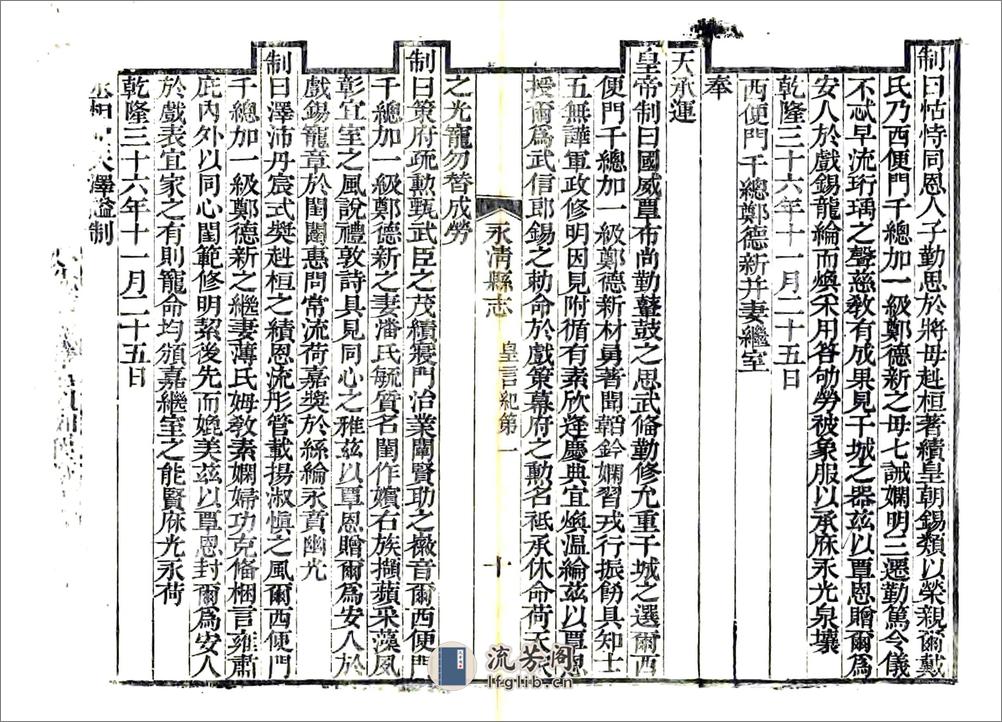 制曰怙恃同恩人子勤思於將母赳桓著績皇朝錫類以榮親爾戴
氏乃西便門千總加一級鄭德新之母七誡嫻明三遷勤篤令儀
不忒早流珩瑀之聲慈教有成果見干城之器茲以覃恩贈爾為
安人於戲錫龍綸而煥采用答劬勞被象服以承庥永光泉壤
乾隆三十六年十一月二十五日
西便門千總鄭德新并妻繼室
奉
天承運
皇帝制曰國威覃布尚勤鼙鼓之思武備勤修允重干城之選爾西
便門千總加一級鄭德新材勇著聞韜鈐嫻習戎行振飭具知士
五無譁軍政修明因見附循有素欣逢慶典宜煥溫綸茲以覃恩
授爾為武信郎錫之勅命於戲策幕府之勲名祗承休命荷天
永清縣志
皇言紀第一
十
之光寵勿替成勞
制曰策府疏勲甄武臣之茂績寢門治業闡賢助之徽音爾西便門
千總加一級鄭德新之妻潘氏毓質名閨作嬪右族擷蘋采藻夙
彰宜室之風說禮敦詩具見同心之雅茲以覃恩贈爾為安人於
戲錫龍章於閨閫惠問常流荷嘉獎於絲綸永賁幽光
制曰澤沛丹宸式獎赳桓之績恩流彤管載揚淑慎之風爾西便門
千總加一級鄭德新之繼妻薄氏姆教素嫻婦功克備梱言雍肅
庇內外以同心閨範修明絜後先而媲美茲以覃恩封爾為安人
於戲表宜家之有則寵命均頒嘉繼室之能賢庥光永荷
乾隆三十六年十一月二十五日
流芳阁
lfglib.cn